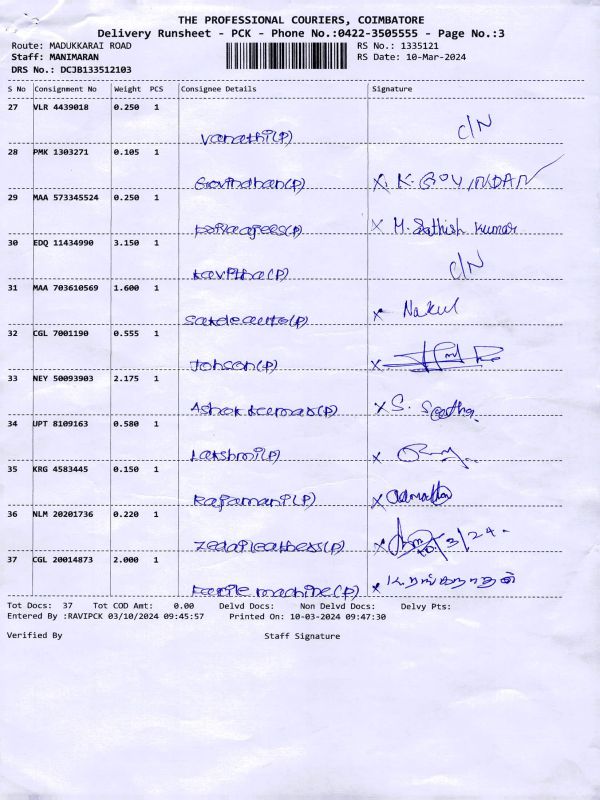 THE PROFESSIONAL COURIERS, COIMBATORE
Delivery Runsheet - PCK - Phone No.:0422-3505555 - Page No.:3
Route: MADUKKARAI ROAD RS No.: 1335121
Staff: MANIMARAN RS Date: 10-Mar-2024
DRS No.: DCJB133512103
S No Consignment No Weight PCS Consignee Details Signature
27 VLR 4439018 0.250 1
Vanathi(P) C/N
28 PMK 1303271 0.105 1
Govindhan(P) X. K. GOVINDAN
29 MAA 573345524 0.250 1
(P) X M. Sathish Kumar
30 EDQ 11434990 3.150 1
Kavitha(P) C/N
31 MAA 703610569 1.600 1
(P) X Nakul
32 CGL 7001190 0.555 1
Johson(P) X
33 NEY 50093903 2.175 1
Ashok Kumar(P) X S. Seetha
34 UPT 8109163 0.580 1
Lakshmi(P) X
35 KRG 4583445 0.150 1
Rajamani(P) X
36 NLM 20201736 0.220 1
(P) X 10/3/24.
37 CGL 20014873 2.000 1
machine(P) X
Tot Docs: 37 Tot COD Amt: 0.00 Delvd Docs: Non Delvd Docs: Delvy Pts:
Entered By :RAVIPCK 03/10/2024 09:45:57 Printed On: 10-03-2024 09:47:30
Verified By Staff Signature